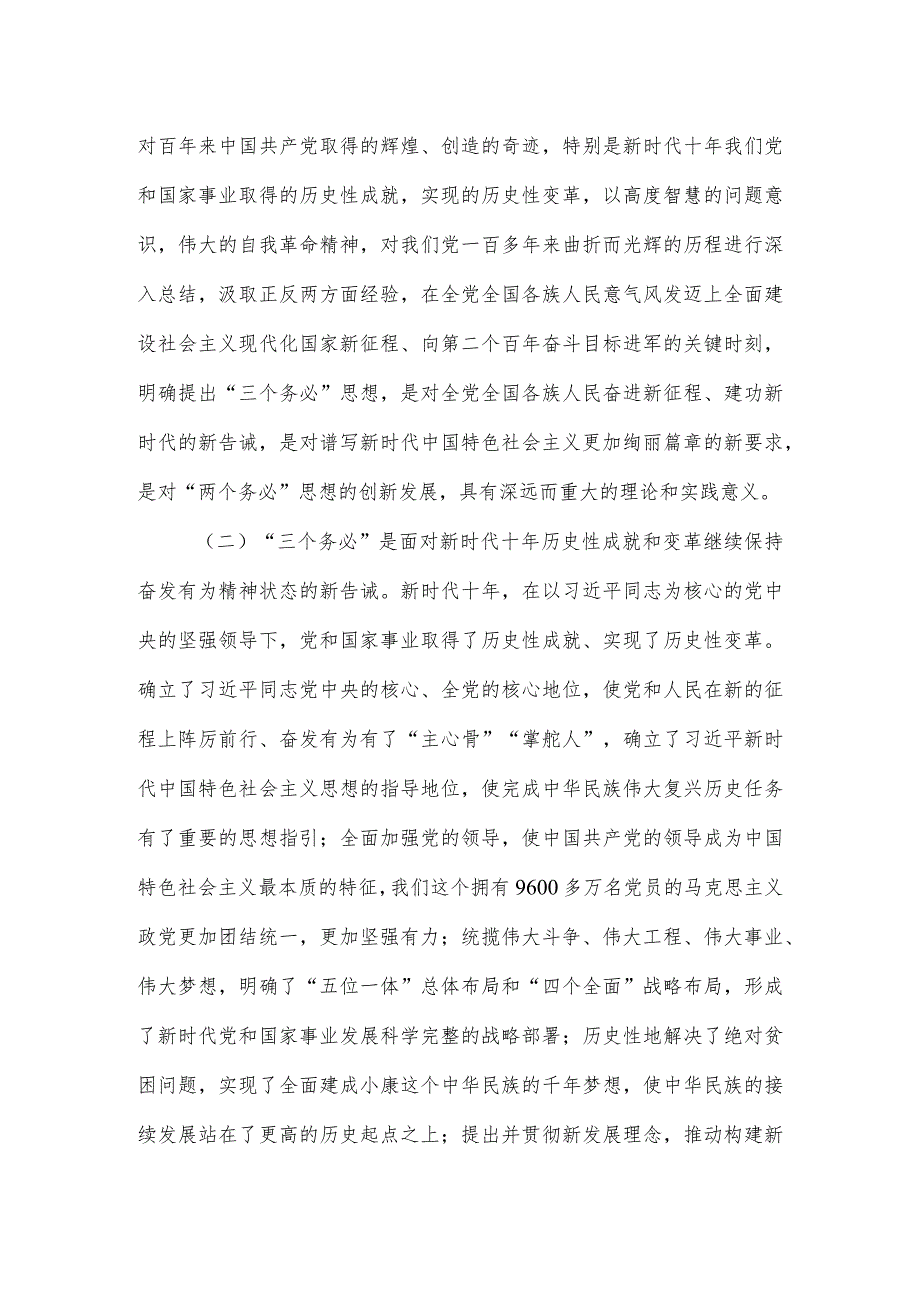 对百年来中国共产党取得的辉煌、创造的奇迹，特别是新时代十年我们党
和国家事业取得的历史性成就，实现的历史性变革，以高度智慧的问题意
识，伟大的自我革命精神，对我们党一百多年来曲折而光辉的历程进行深
入总结，汲取正反两方面经验，在全党全国各族人民意气风发迈上全面建
设社会主义现代化国家新征程、向第二个百年奋斗目标进军的关键时刻，
明确提出“三个务必”思想，是对全党全国各族人民奋进新征程、建功新
时代的新告诫，是对谱写新时代中国特色社会主义更加绚丽篇章的新要求，
是对“两个务必”思想的创新发展，具有深远而重大的理论和实践意义。
（二）“三个务必”是面对新时代十年历史性成就和变革继续保持
奋发有为精神状态的新告诫。新时代十年，在以习近平同志为核心的党中
央的坚强领导下，党和国家事业取得了历史性成就、实现了历史性变革。
确立了习近平同志党中央的核心、全党的核心地位，使党和人民在新的征
程上阵厉前行、奋发有为有了“主心骨”“掌舵人”，确立了习近平新时
代中国特色社会主义思想的指导地位，使完成中华民族伟大复兴历史任务
有了重要的思想指引；全面加强党的领导，使中国共产党的领导成为中国
特色社会主义最本质的特征，我们这个拥有9600多万名党员的马克思主义
政党更加团结统一，更加坚强有力；统揽伟大斗争、伟大工程、伟大事业、
伟大梦想，明确了“五位一体”总体布局和“四个全面”战略布局，形成
了新时代党和国家事业发展科学完整的战略部署；历史性地解决了绝对贫
困问题，实现了全面建成小康这个中华民族的千年梦想，使中华民族的接
续发展站在了更高的历史起点之上；提出并贯彻新发展理念，推动构建新